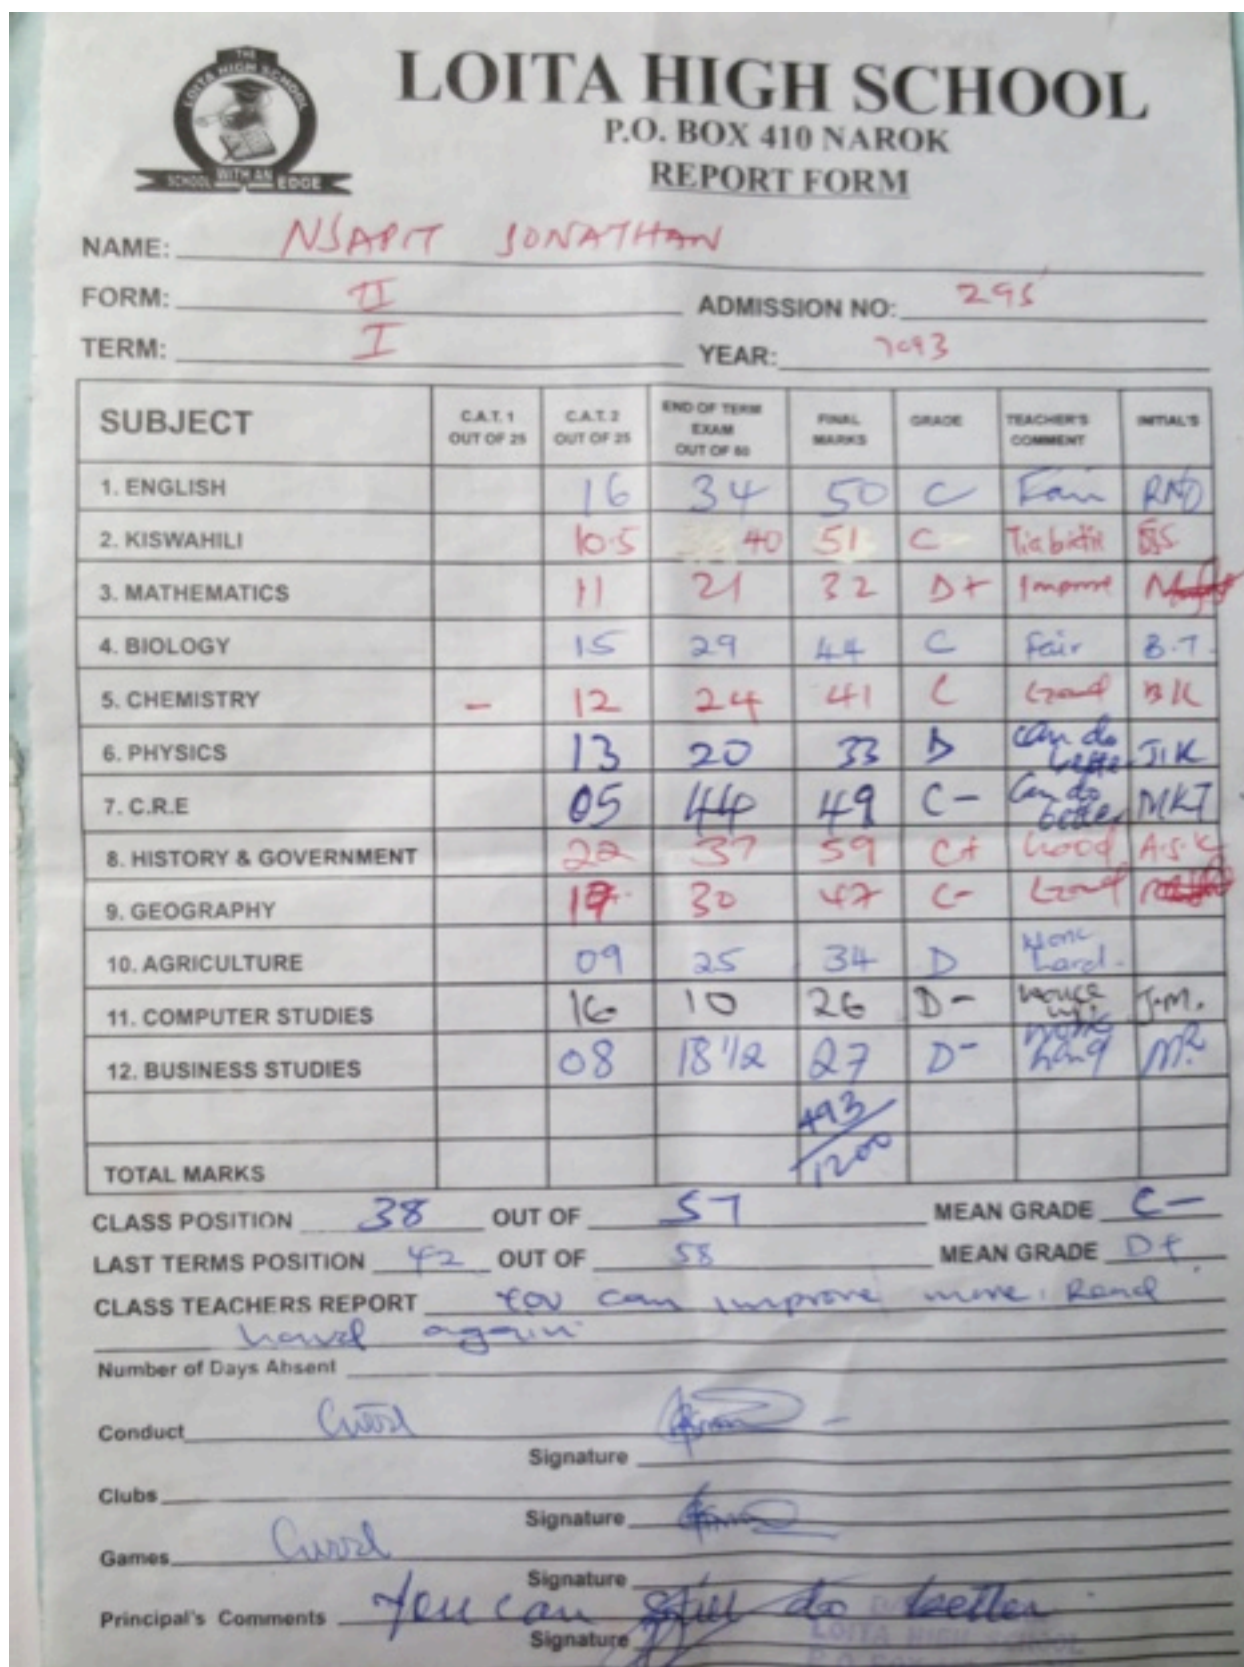 THE
LOITA HIGH SCHOOL
SCHOOL WITH AN EDGE
LOITA HIGH SCHOOL
P.O. BOX 410 NAROK
REPORT FORM
NAME: NSAPIT JONATHAN
FORM: II ADMISSION NO: 295
TERM: I YEAR:
SUBJECT C.A.T. 1 OUT OF 25 C.A.T. 2 OUT OF 25 END OF TERM EXAM OUT OF 50 FINAL MARKS GRADE TEACHER'S COMMENT INITIAL'S
1. ENGLISH 16 34 50 C Fair RNO
2. KISWAHILI 10.5 40 51 C-
3. MATHEMATICS 11 21 32 D+ Improve
4. BIOLOGY 15 29 44 C Fair B.T.
5. CHEMISTRY - 12 24 41 C Good BK
6. PHYSICS 13 20 33 D can do better JIK
7. C.R.E 05 44 49 C- Can do better MKT
8. HISTORY & GOVERNMENT 22 37 59 C+ Good A.S.K
9. GEOGRAPHY 17 30 47 C- Good
10. AGRICULTURE 09 25 34 D Work hard.
11. COMPUTER STUDIES 16 10 26 D- J.M.
12. BUSINESS STUDIES 08 18 1/2 27 D- Work hard
493/1200
TOTAL MARKS
CLASS POSITION 38 OUT OF 57 MEAN GRADE C-
LAST TERMS POSITION 42 OUT OF 58 MEAN GRADE D+
CLASS TEACHERS REPORT You can improve more. Read
hard again
Number of Days Absent
Conduct Good
Signature
Clubs
Signature
Games Good
Signature
Principal's Comments You can still do better
Signature
LOITA HIGH SCHOOL